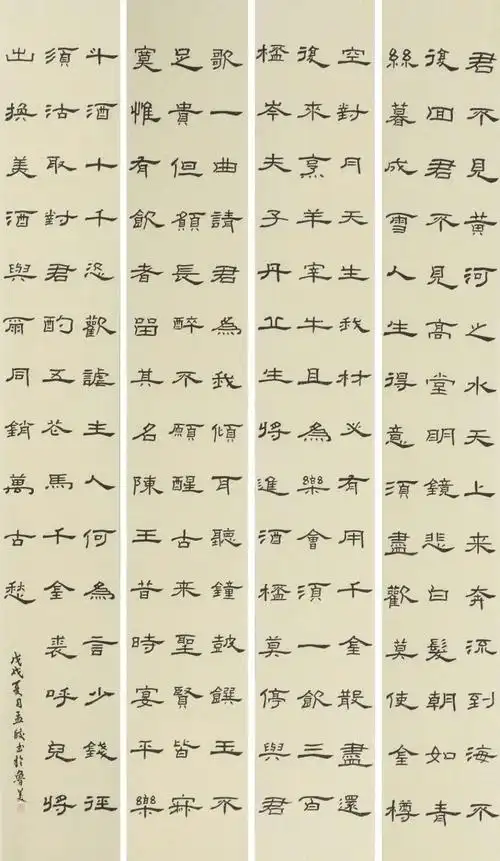 君不見黃河之水天上来奔流到海不
復回君不見高堂明鏡悲白髮朝如青
絲暮成雪人生得意須盡歡莫使金樽
空對月天生我材必有用千金散盡還
復来烹羊宰牛且為樂會須一飲三百
桮岑夫子丹丘生將進酒桮莫停與君
歌一曲請君為我傾耳聽鐘鼓饌玉不
足貴但願長醉不願醒古来聖賢皆寂
寞惟有飲者留其名陳王昔時宴平樂
斗酒十千恣歡謔主人何為言少錢徑
須沽取對君酌五花馬千金裘呼兒將
出換美酒與爾同銷萬古愁
戊戌夏月孟書於魯美